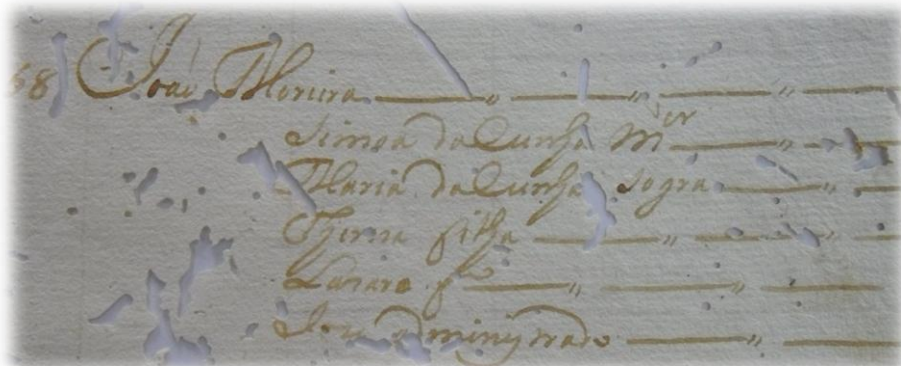 58 João Moreira
Simoa da Cunha M.er
Maria da Cunha sogra
Thereza filha
Lazaro f.o
administrado